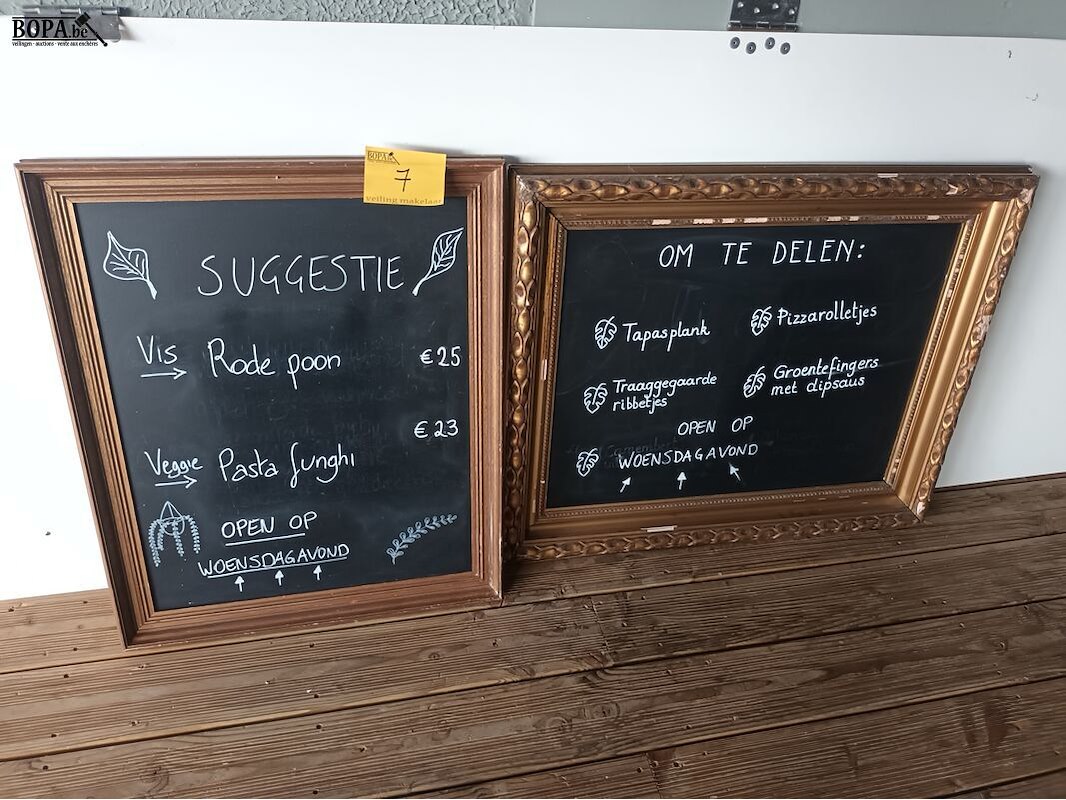 BOPA.be
veilingen - auctions - vente aux enchères
BOPA.be
7
veiling makelaar
SUGGESTIE
Vis Rode poon €25
€23
Veggie Pasta funghi
OPEN OP
WOENSDAGAVOND
OM TE DELEN:
Tapasplank
Pizzarolletjes
Traaggegaarde
ribbetjes
Groentefingers
met dipsaus
OPEN OP
WOENSDAGAVOND